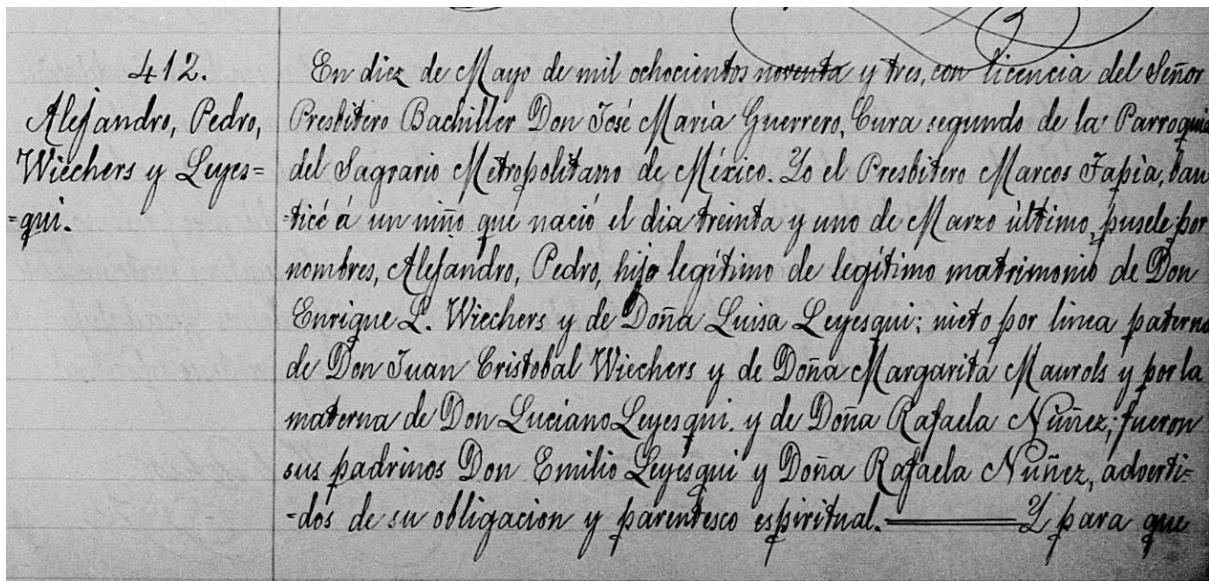 412.
Alejandro, Pedro,
Wiechers y Leyes=
=qui.
En diez de Mayo de mil ochocientos noventa y tres, con licencia del Señor
Presbitero Bachiller Don José Maria Guerrero, Cura segundo de la Parroquia
del Sagrario Metropolitano de México. Yo el Presbitero Marcos Tapia, bau
=ticé á un niño que nació el dia treinta y uno de Marzo último, púsele por
nombres, Alejandro, Pedro, hijo legítimo de legítimo matrimonio de Don
Enrique L. Wiechers y de Doña Luisa Leyesqui; nieto por linea paterna
de Don Juan Cristobal Wiechers y de Doña Margarita Maurols y por la
materna de Don Luciano Leyesqui. y de Doña Rafaela Nuñez; fueron
sus padrinos Don Emilio Leyesqui y Doña Rafaela Nuñez, adverti=
=dos de su obligacion y parentesco espiritual. Y para que